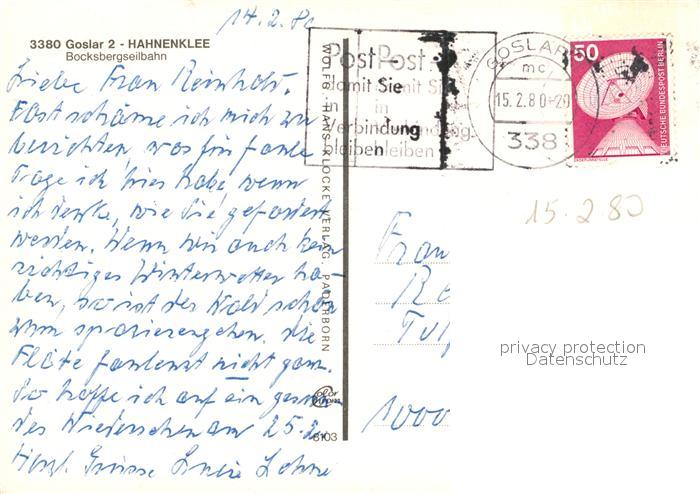 14.2.80
3380 Goslar 2 - HAHNENKLEE
Bocksbergseilbahn
Liebe Frau Reinhold,
Fast schäme ich mich zu
berichten, was für faule
Tage ich hier habe, wenn
ich denke, wie Sie gefordert
werden. Wenn wir auch kein
richtiges Winterwetter ha-
ben, so ist der Wald schön
zum spazierengehen. Die
Flöte faulenzt nicht ganz.
So hoffe ich auf ein gesun
des Wiedersehen am 25.2.
Herzl. Grüsse
WOLFG. HANS KLOCKE VERLAG PADERBORN
6103
Post Post
damit Sie mit Sie
in in
Verbindung
bleiben bleiben
GOSLAR
mc
15.2.80-20
338
50
DEUTSCHE BUNDESPOST BERLIN
ERDEFUNKSTELLE
15.2 80
Frau
Re
Tul
1000
privacy protection
Datenschutz